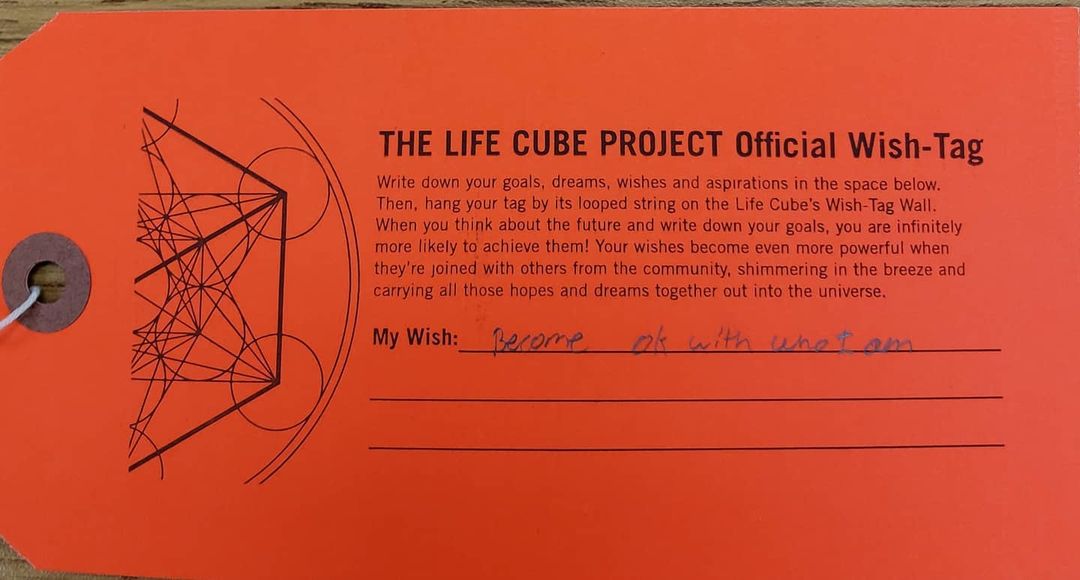 THE LIFE CUBE PROJECT Official Wish-Tag
Write down your goals, dreams, wishes and aspirations in the space below.
Then, hang your tag by its looped string on the Life Cube's Wish-Tag Wall.
When you think about the future and write down your goals, you are infinitely
more likely to achieve them! Your wishes become even more powerful when
they're joined with others from the community, shimmering in the breeze and
carrying all those hopes and dreams together out into the universe.
My Wish: Become ok with who I am